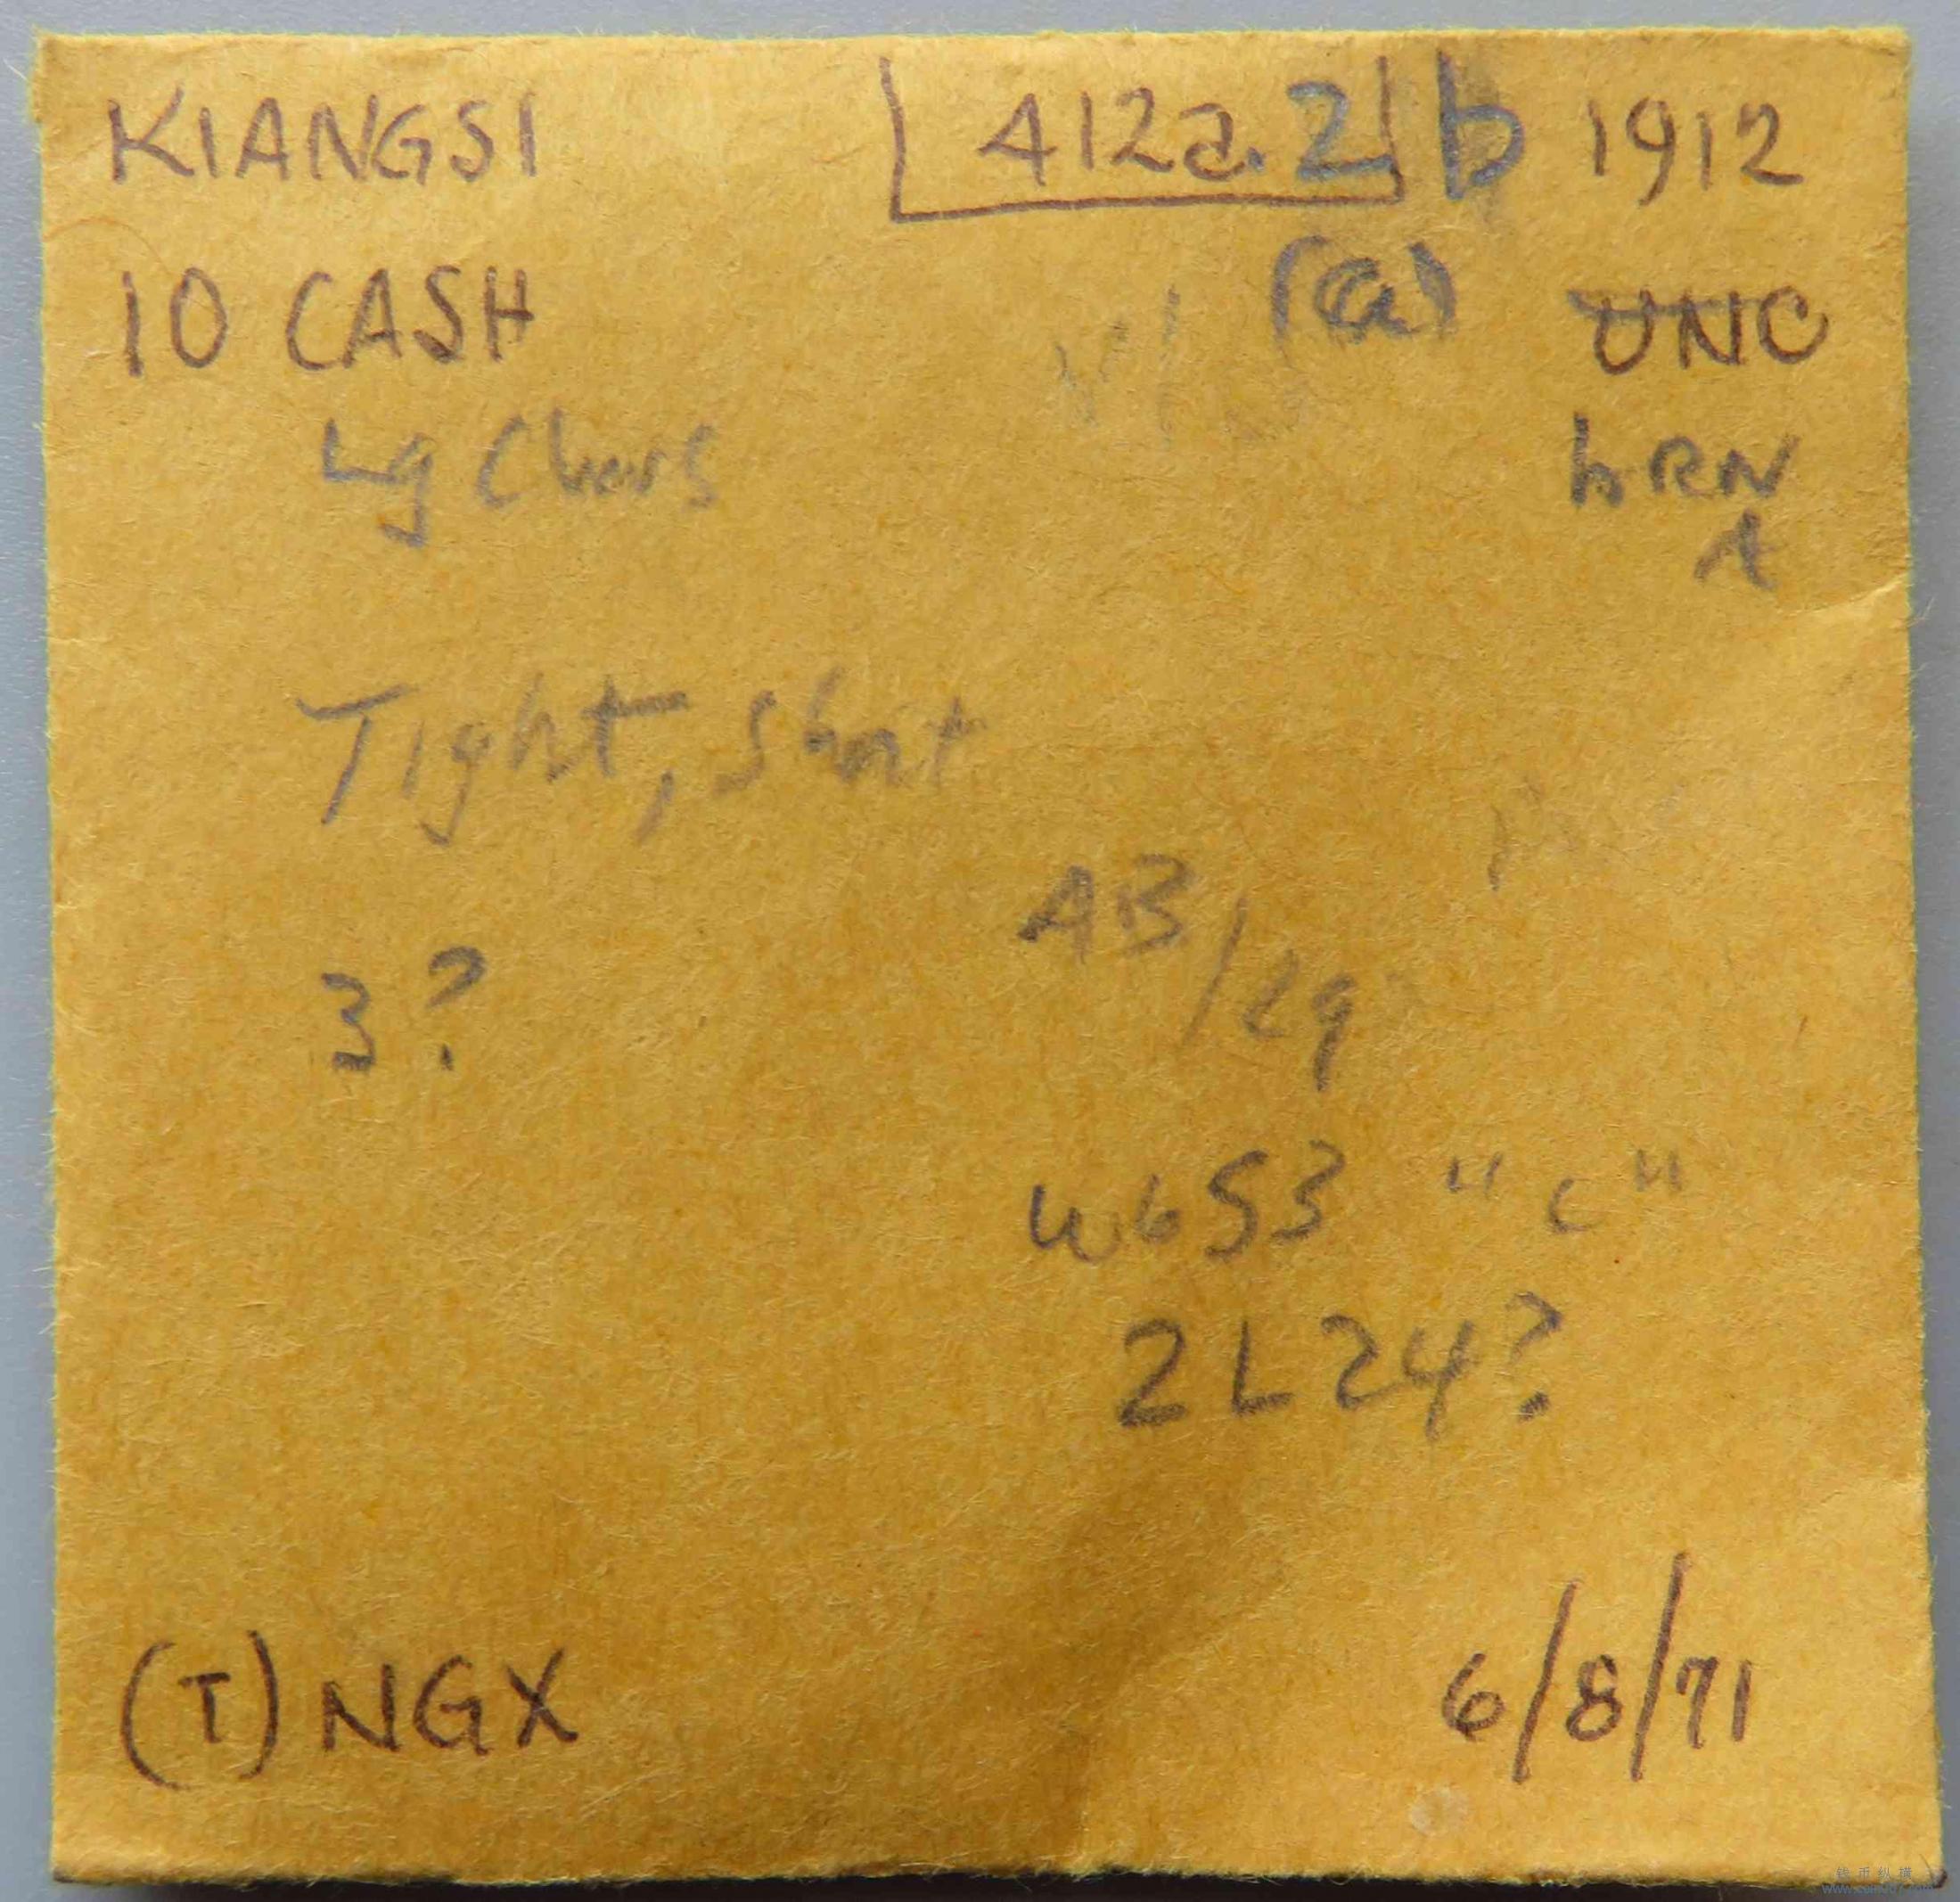 KIANGSI 412a.2 b 1912
10 CASH (a) UNC
Lg Chars BRN
A
Tight, Short
AB/29
3?
W653 "c"
2L24?
(T) NGX 6/8/71
钱币纵横